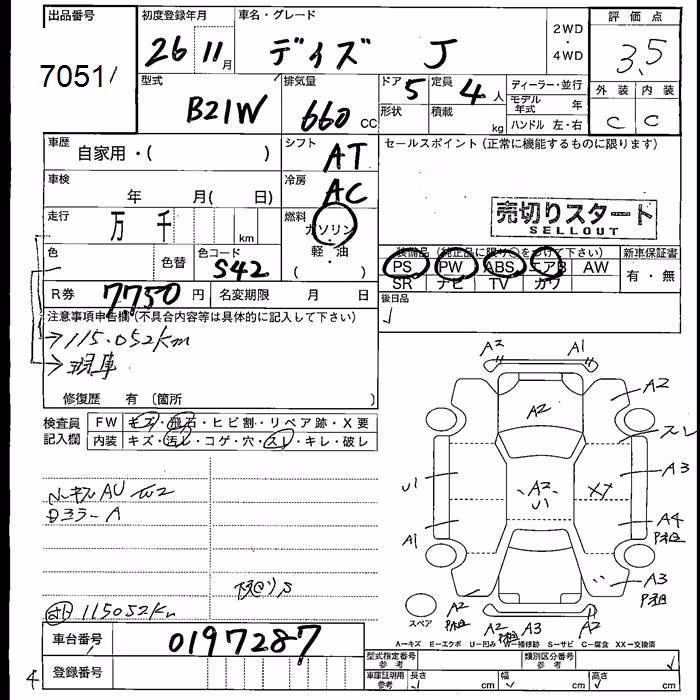 出品番号 初度登録年月 車名・グレード 2WD・4WD 評価点
7051 26 11月 デイズ J 3.5
型式 排気量 ドア 5 定員 4人 ディーラー・並行 外装 内装
B21W 660 CC 形状 積載 kg モデル年式 年 C C
ハンドル 左・右
車歴 自家用・( ) シフト AT セールスポイント(正常に機能するものに限ります)
車検 年 月( 日) 冷房 AC
走行 万 千 km 燃料 ガソリン・軽・油 ( ) 売切りスタート
SELLOUT
色 色替 色コード S42 装備品(純正品に限り○を付けて下さい) 新車保証書
PS PW ABS エアB AW 有・無
SR ナビ TV カワ
R券 7750円 名変期限 月 日 後日品
注意事項申告欄(不具合内容等は具体的に記入して下さい)
→115.052km
→現車
修復歴 有 〔箇所 〕
検査員記入欄 FW キズ・飛石・ヒビ割・リペア跡・X要
内装 キズ・汚レ・コゲ・穴・スレ・キレ・破レ
A2 A1
A2
A2
スレ
U1 A2 U1 XX A3
A1 A4
A3
115052km
スペア A2 A2 A3 A2
A=キズ E=エクボ U=凹み W=補修跡 S=サビ C=腐食 XX=交換済
車台番号 0197287 型式指定番号 参考 類別区分番号 参考
登録番号 車庫証明用 参考 長さ cm 幅 cm 高さ cm
4